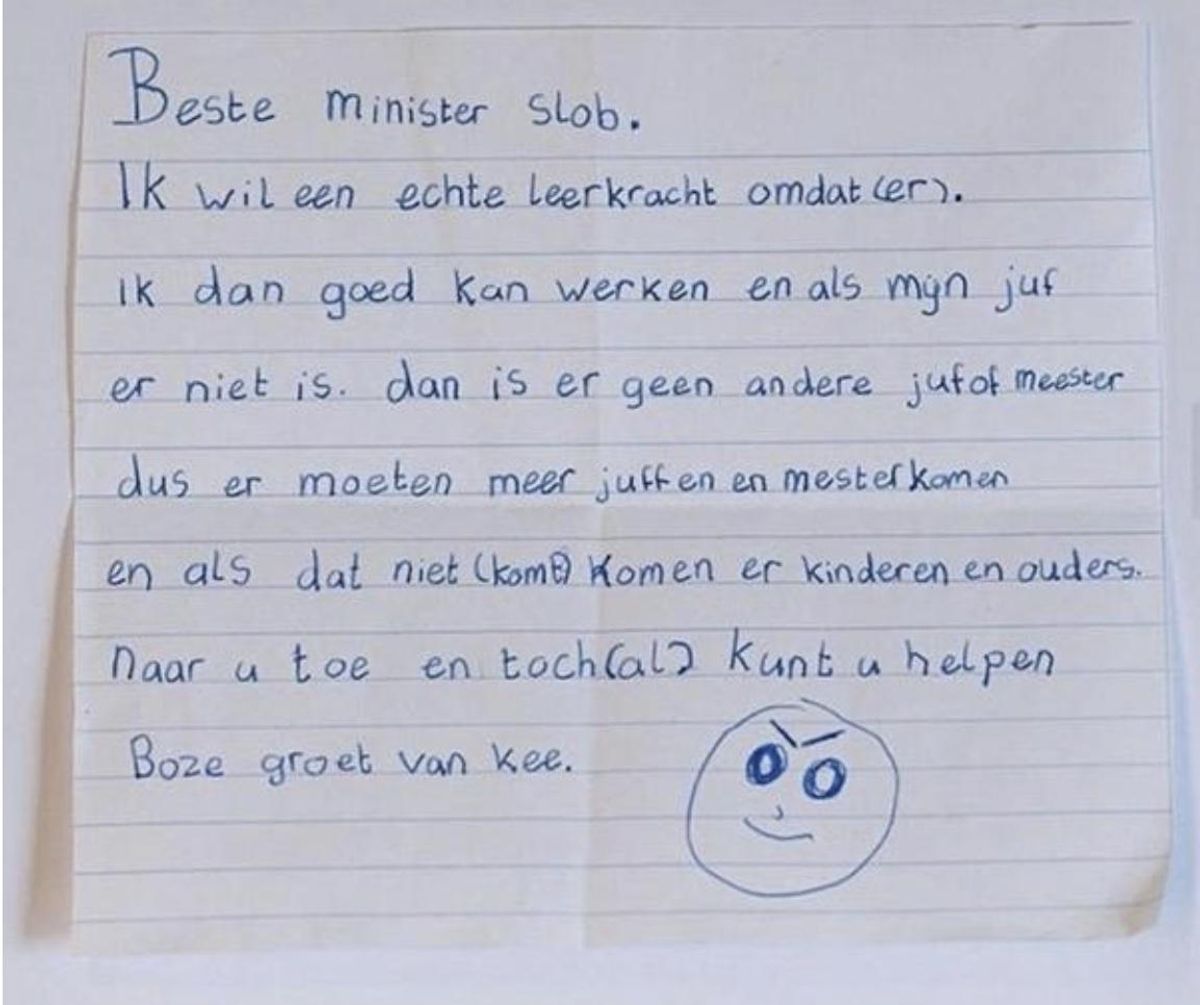 Beste minister Slob.
Ik wil een echte leerkracht omdat (er).
ik dan goed kan werken en als mijn juf
er niet is. dan is er geen andere juf of meester
dus er moeten meer juffen en mester komen
en als dat niet (komt) komen er kinderen en ouders.
naar u toe en toch (al) kunt u helpen
Boze groet van kee.